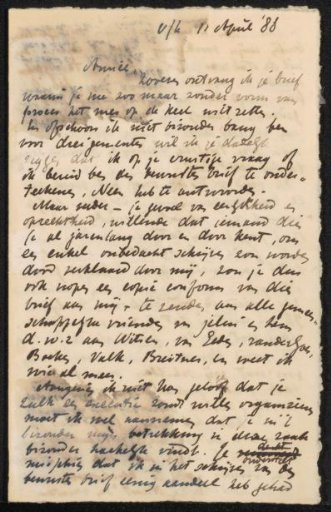 v/h 11 April '88
Amice,
Zooeven ontvang ik je brief
waarin je me zoo maar zonder vorm van
proces het mes op de keel wilt zetten,
En ofschoon ik niet bizonder bang ben
voor dreigementen wil ik je dadelijk
zeggen dat ik op je ernstige vraag of
ik bereid ben den bewusten brief te onder-
teekenen, Neen heb te antwoorden.
Maar verder — je gevoel van eerlijkheid en
oprechtheid, willende dat iemand die
je al jarenlang door en door kent, om
een enkel onbedacht schrijven zou worden
dood verklaard door mij, zou je dus
ook nopen een copie conform van die
brief aan mij, te zenden aan alle gemeen-
schappelijke vrienden van jelui en hem
d.w.z aan Witsen, van Eeden, van der Goes,
Boeken, Valk, Breitner, en weet ik
wie al meer.
Aangezien ik niet kan gelooven dat je
zulk een executie zoudt willen organiseeren
moet ik wel aannemen dat je in 't
bizonder mijn betrekking in deze zaak
bizonder hachelijk vindt. Je denkt
misschien dat ik in het schrijven van den
bewusten brief eenig aandeel heb gehad